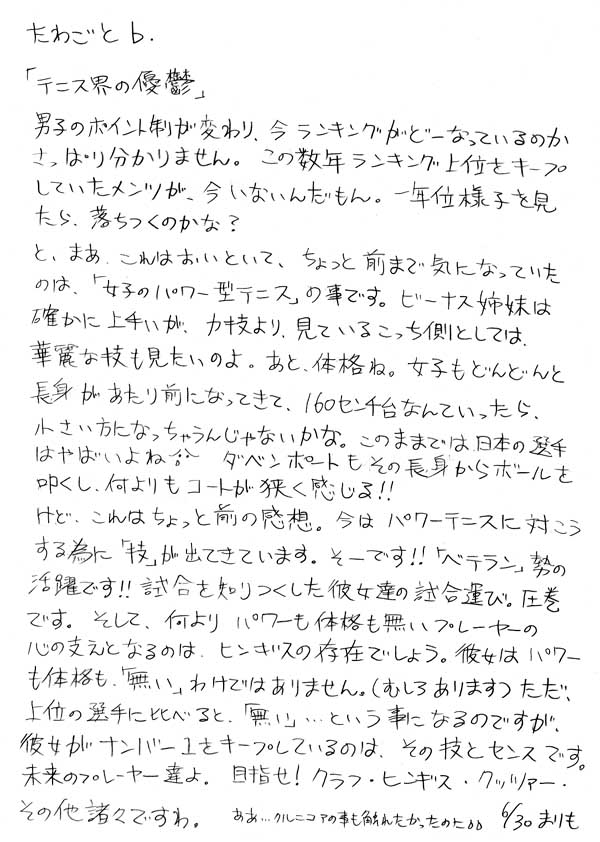 たわごと6.
「テニス界の優鬱」
男子のポイント制が変わり、今ランキングがどーなっているのか
さっぱり分かりません。この数年ランキング上位をキープ
していたメンツが、今いないんだもん。一年位様子を見
たら、落ちつくのかな？
と、まあ、これはおいといて、ちょっと前まで気になっていた
のは、「女子のパワー型テニス」の事です。ビーナス姉妹は
確かに上手いが、力技より、見ているこっち側としては、
華麗な技も見たいのよ。あと、体格ね。女子もどんどんと
長身があたり前になってきて、160センチ台なんていったら、
小さい方になっちゃうんじゃないかな。このままでは、日本の選手
はやばいよね ダベンポートもその長身からボールを
叩くし、何よりもコートが狭く感じる!!
けど、これはちょっと前の感想。今はパワーテニスに対こう
する為に「技」が出てきています。そーです!!「ベテラン」勢の
活躍です!!試合を知りつくした彼女達の試合運び。圧巻
です。そして、何よりパワーも体格も無いプレーヤーの
心の支えとなるのは、ヒンギスの存在でしょう。彼女はパワー
も体格も、「無い」わけではありません。(むしろあります)ただ、
上位の選手に比べると、「無い」…という事になるのですが、
彼女がナンバー1をキープしているのは、その技とセンスです。
未来のプレーヤー達よ。目指せ！グラフ・ヒンギス・クッツァー・
その他諸々ですわ。 ああ…クルニコアの事も触れたかったのに。。 6/30 まりも